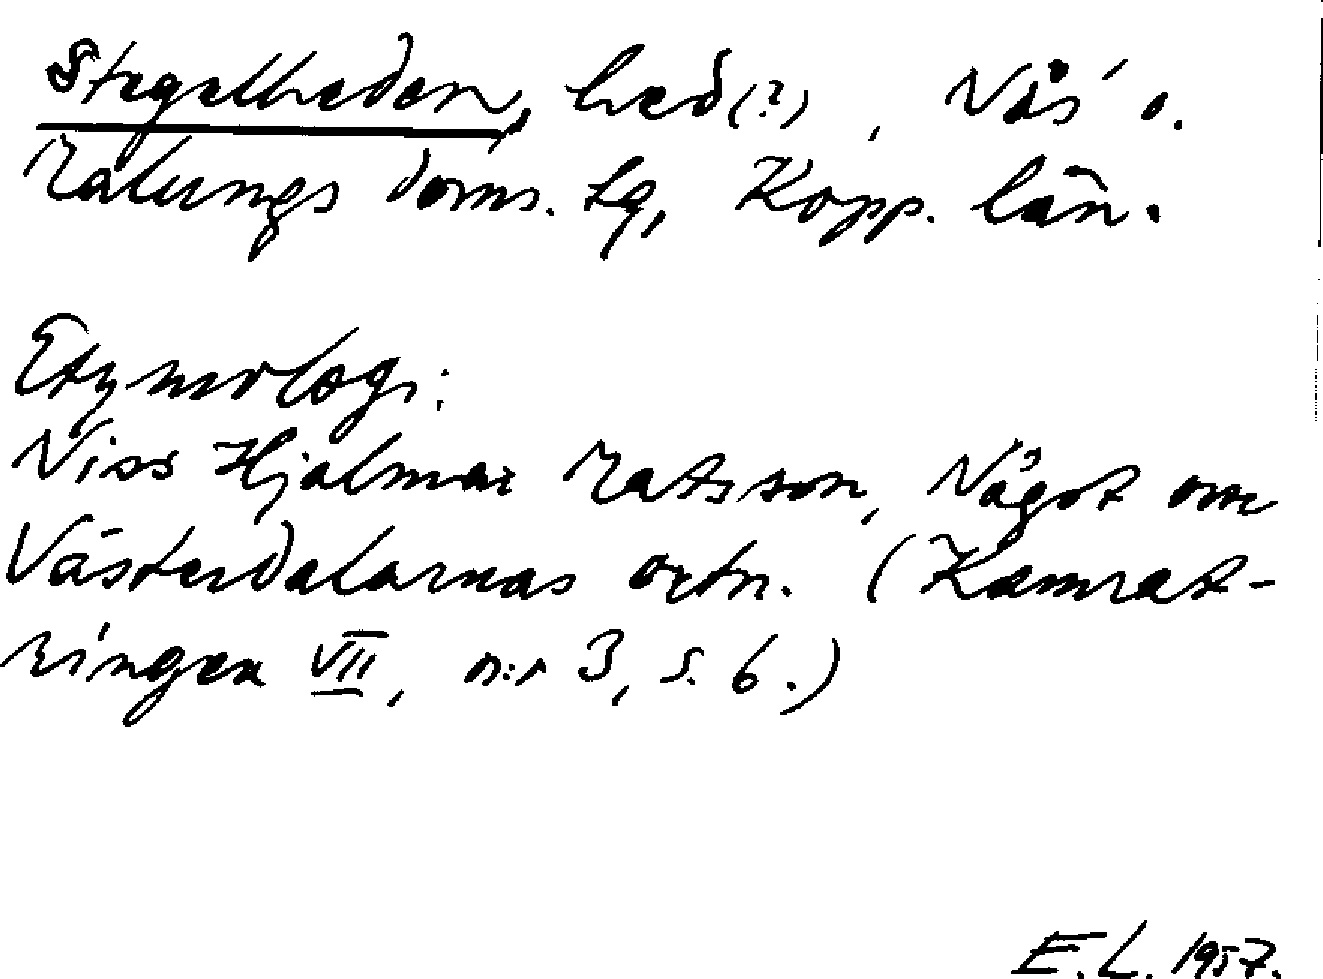 Stegelheden, hed (?), Nås' o.
Malungs doms. tg, Kopp. län.
Etymologi:
Viss Hjalmar Matsson, Något om
Västerdalarnas ortn. (Kamrat-
ringen VII, n:r 3, s. 6.)
E.L. 1957.